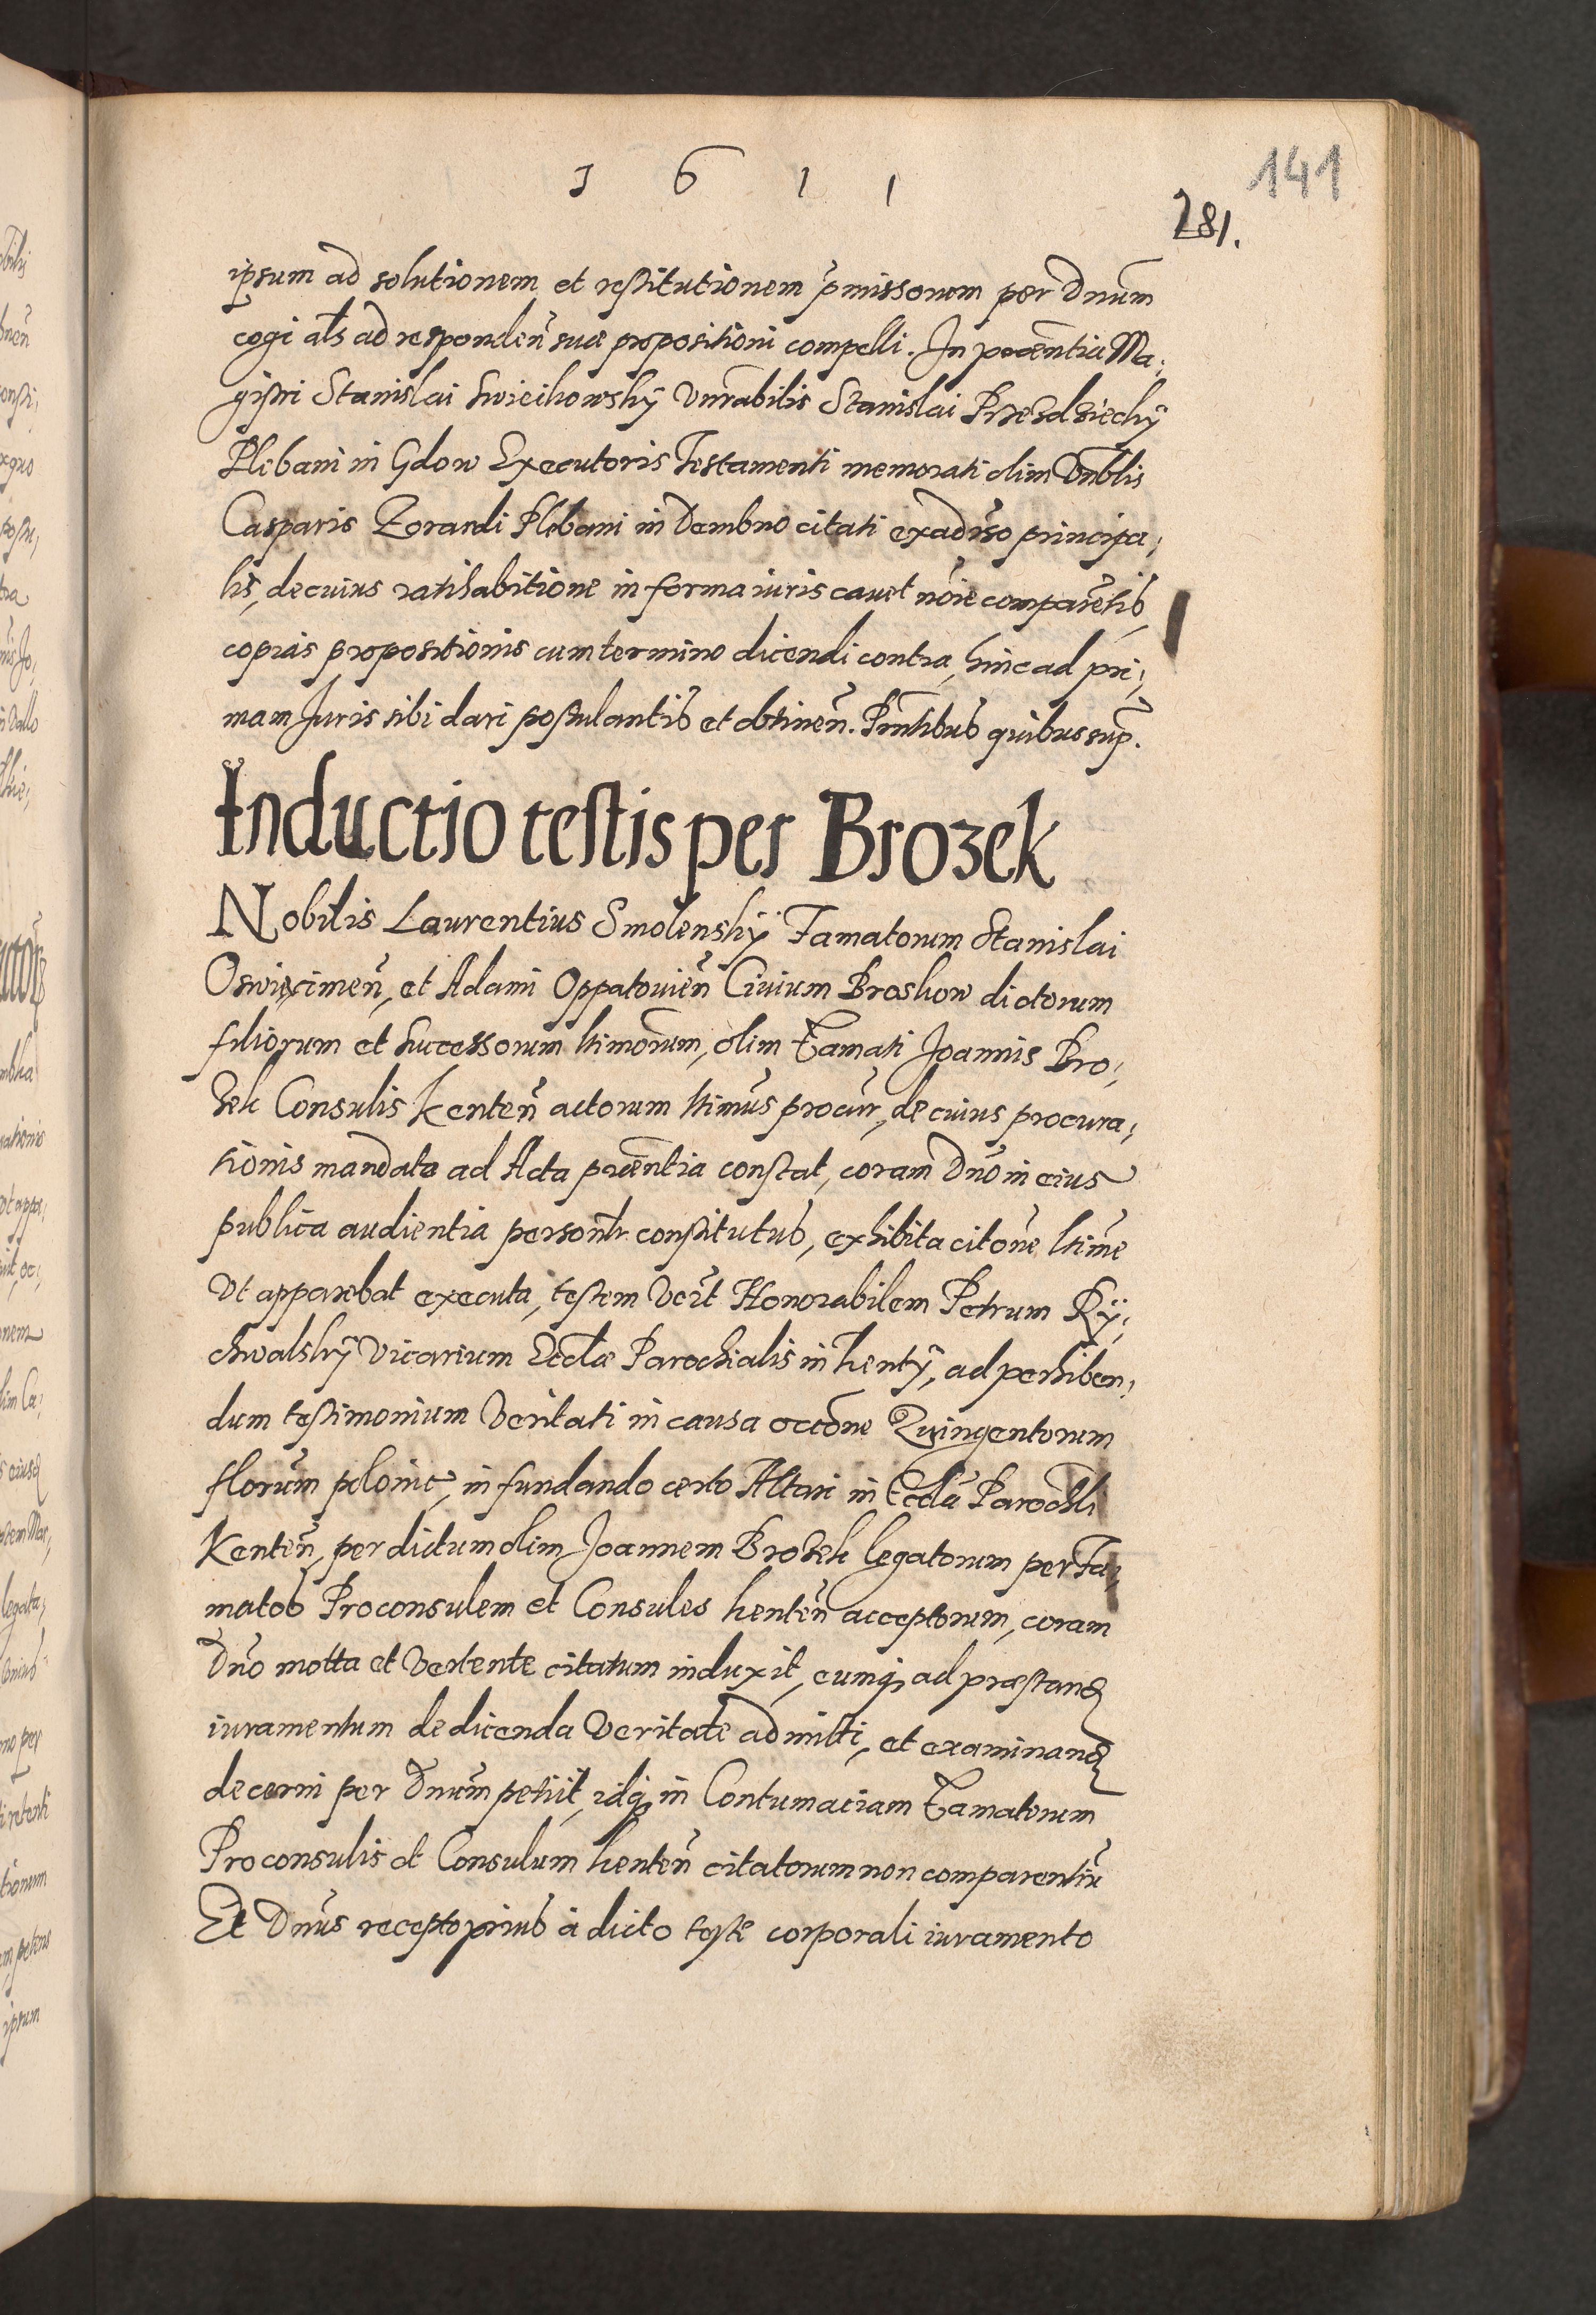 1 6 1 1
141
281.
ipsum ad solutionem et restitutionem p̃missorum per Dnũm
cogi als ad responden̄ suæ propositioni compelli. In præntia Ma;
gistri Stanislai Swiecikowskÿ Vnrabilis Stanislai Przezdzieckÿ
Plebani in Gdow Executoris Testamenti memorati olim Vnblis
Casparis Zorardi Plebani in Dembno citati ex aduerso principa;
lis, de cuius ratihabitione in forma iuris cauet nōie comparentis,
copias propositionis cum termino dicendi contra, hinc ad pri;
mam Iuris sibi dari postulantis et obtinen̄. Pnntibus quibus sup̃.
Inductio testis per Brozek
Nobilis Laurentius Smolenskÿ Famatorum Stanislai
Oswięcimen̄, et Adami Oppatouien̄ Ciuium Broskow dictorum
filiorum et Successorum ltimorum, olim Famati Joannis Bro;
zek Consulis Kenten̄ actorum ltimus procur, de cuius procura;
tionis mandato ad Acta præntia constat, coram Dño in eius
publica audientia personlr constitutus, exhibita citōne ltime
vt apparebat executa, testem Vert Honorabilem Petrum Rÿ;
chwalskÿ Vicarium Ecclæ Parochialis in Kentÿ, ad perhiben;
dum testimonium Veritati in causa occōne Quingentorum
florum polonic, in fundando certo Altari in Eccla Parochli
Kenten̄, per dictum olim Joannem Brozek legatorum per Fa;
matos Proconsulem et Consules Kenten̄ acceptorum, coram
Dño motta et Vertente citatum induxit, eumq; ad præstand
iuramentum de dicenda Veritate admitti, et examinand
decerni per Dnũm petiit, idq; in Contumaciam Famatorum
Proconsulis et Consulum Kenten̄ citatorum non comparentiũ
Et Dnũs recepto prius à dicto teste corporali iuramento